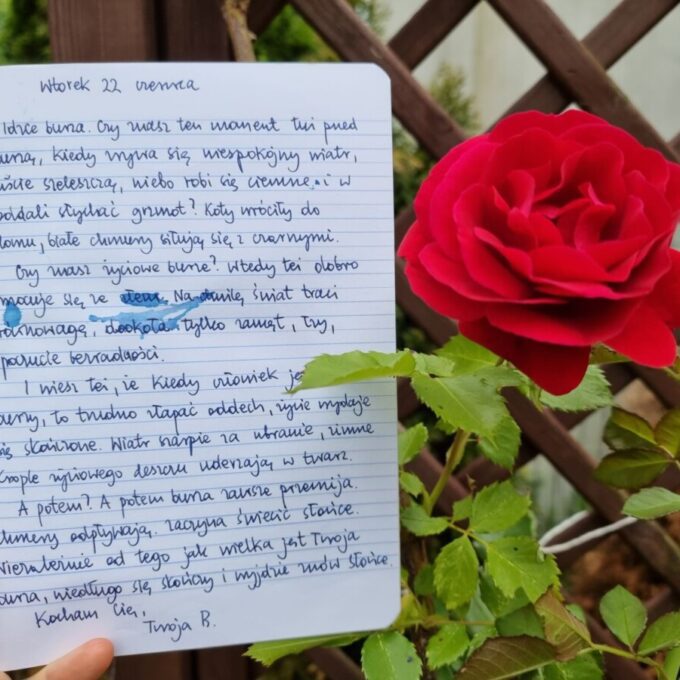 Wtorek 22 czerwca
Idzie burza. Czy znasz ten moment tuż przed
burzą, kiedy zrywa się niespokojny wiatr,
liście szeleszczą, niebo robi się ciemne i w
oddali słychać grzmot? Koty wróciły do
domu, białe chmury siłują się z czarnymi.
Czy znasz życiowe burze? Wtedy też dobro
mocuje się ze złem. Na chwilę świat traci
równowagę, dookoła tylko zamęt, łzy,
poczucie bezradności.
I wiesz też, że kiedy człowiek
burzy, to trudno złapać oddech, życie wydaje
się skończone. Wiatr szarpie za ubranie, zimne
krople życiowego deszczu uderzają w twarz.
A potem? A potem burza zawsze przemija.
Chmury odpływają. Zaczyna świecić słońce.
Niezależnie od tego jak wielka jest Twoja
burza, niedługo się skończy i wyjdzie znów słońce.
Kocham Cię,
Twoja B.